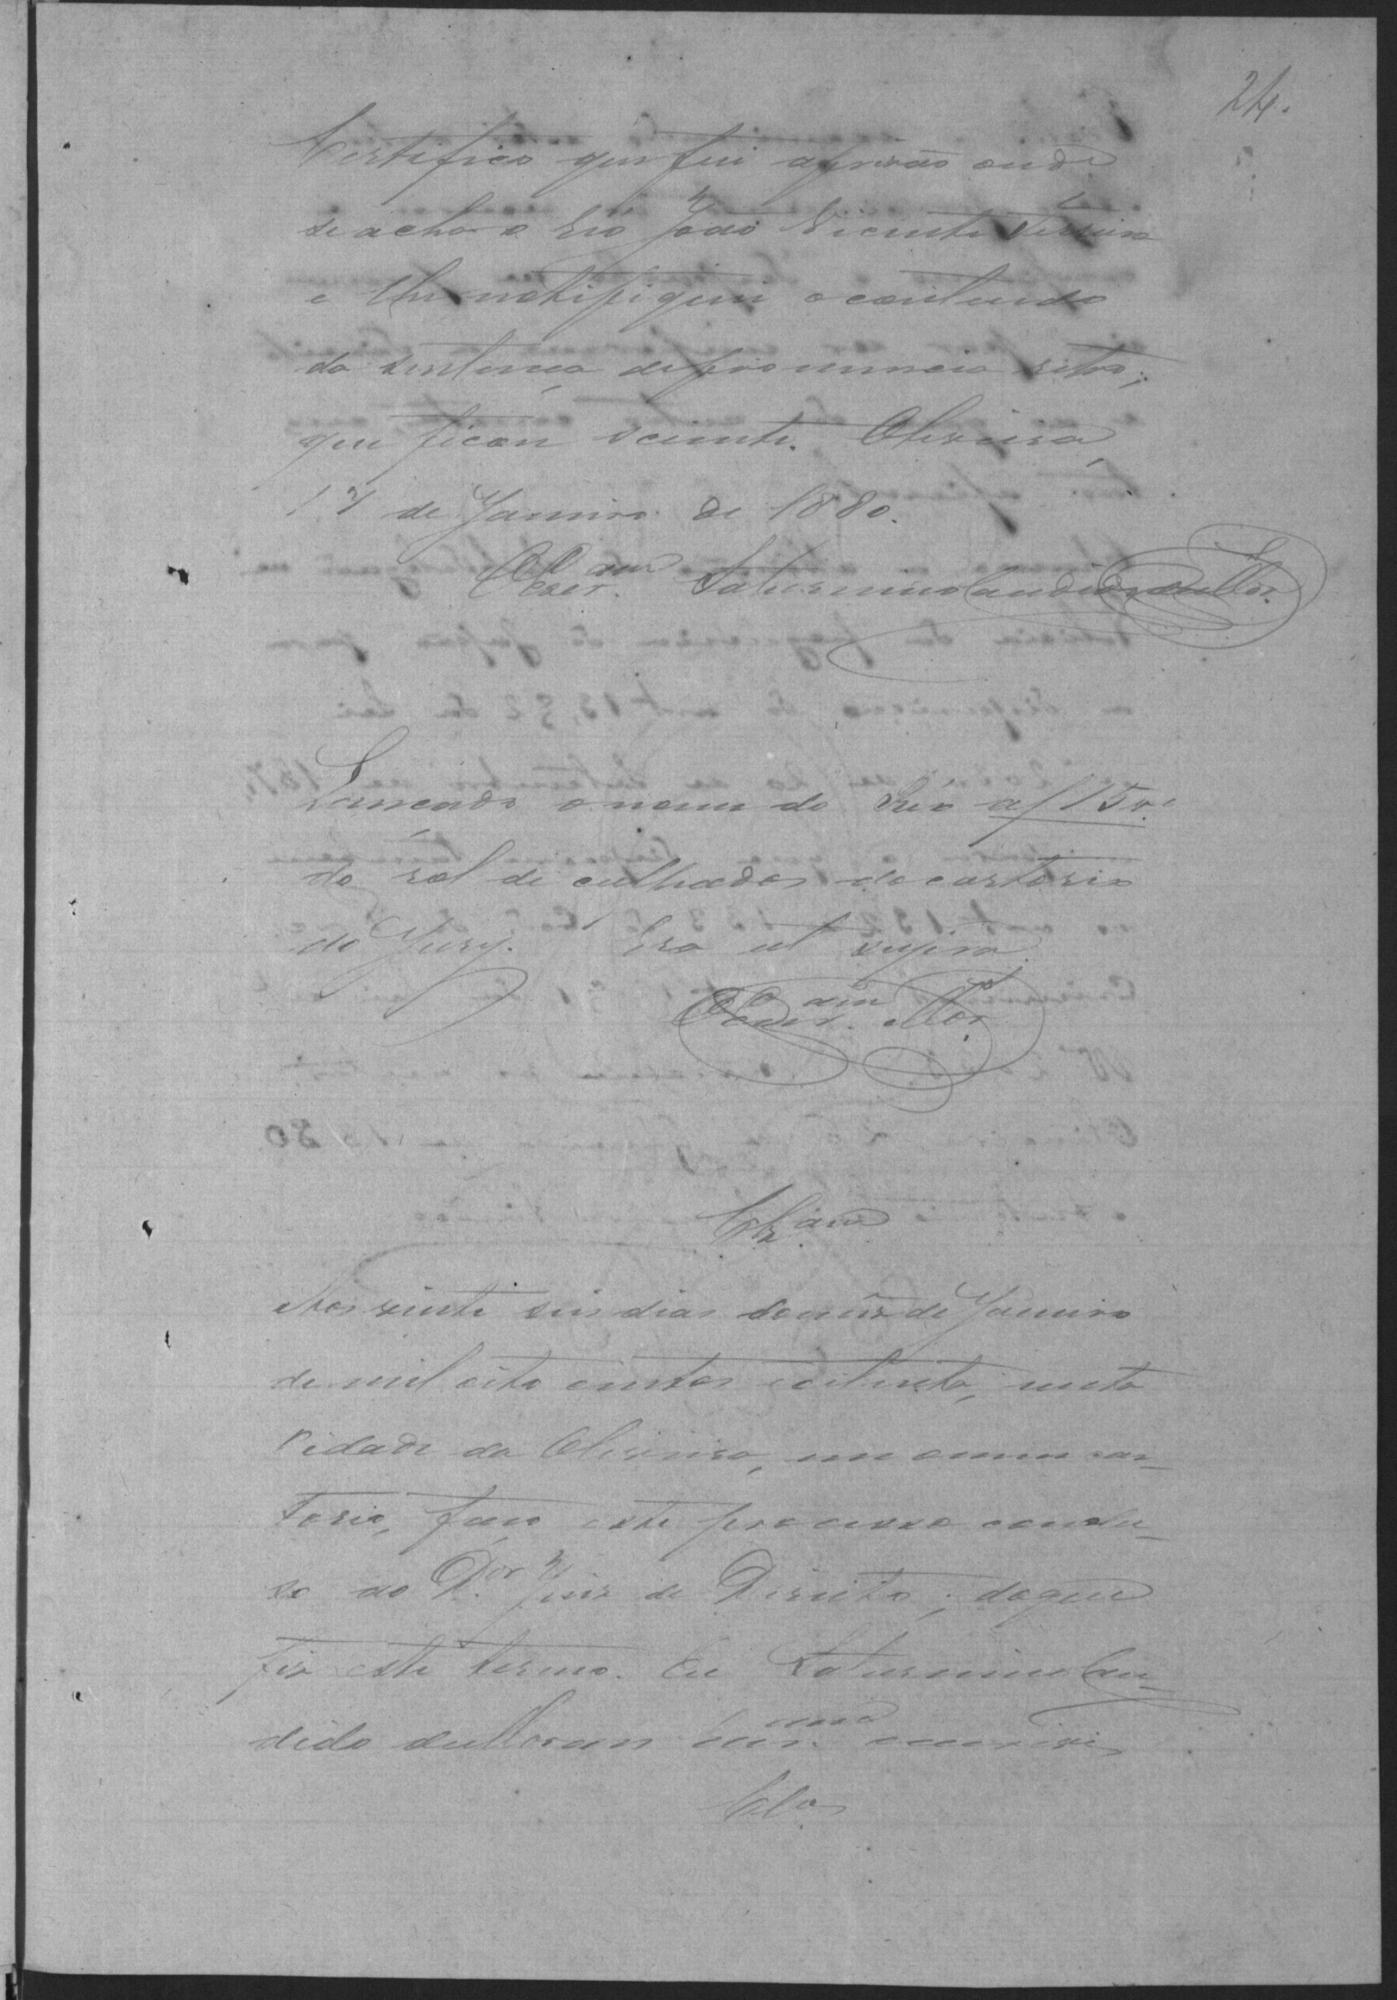 24.
Certifico que fui aprisão onde
se acha o réo João Vicente Ferreira
e lhe notifiquei o contendo
da sentença depronuncia retro,
que ficou sciente. Oliveira,
de Janeiro de 1880.
Saturnino Candido
Lançado onome do Réo af 15 v.
do rol de culpados do cartorio
do Jury. Era ut supra.
Clzam
Aos vinte seis dias domez de Janeiro
de mil oito centos eoitenta, nesta
Cidade da Oliveira, em omeu car-
torio, faço este processo conclu-
so ao Dor Juiz de Direito; doque
fiz este termo. Eu Saturnino Can-
dido escrevi
Clos